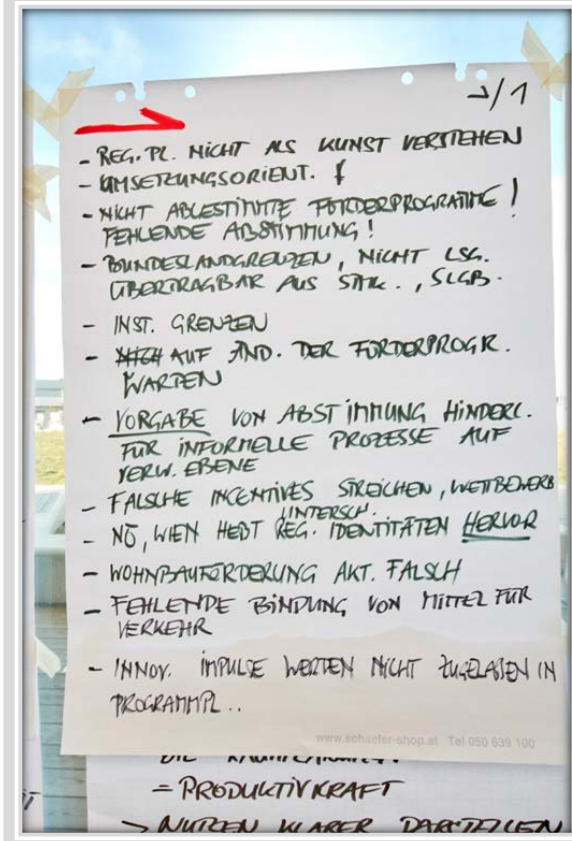 -/1
- REG. PL. NICHT ALS KUNST VERSTEHEN
- UMSETZUNGSORIENT.
- NICHT ABGESTIMMTE FÖRDERPROGRAMME!
FEHLENDE ABSTIMMUNG!
- BUNDESLANDGRENZEN, NICHT LSG.
ÜBERTRAGBAR AUS STMK., SLGB.
- INST. GRENZEN
- AUF ÄND. DER FÖRDERPROGR.
WARTEN
- VORGABE VON ABSTIMMUNG HINDERL.
FÜR INFORMELLE PROZESSE AUF
VERW. EBENE
- FALSCHE INCENTIVES STREICHEN, WETTBEWERB
UNTERSCH.
- NÖ, WIEN HEBT REG. IDENTITÄTEN HERVOR
- WOHNBAUFÖRDERUNG AKT. FALSCH
- FEHLENDE BINDUNG VON MITTEL FÜR
VERKEHR
- INNOV. IMPULSE WERTEN NICHT ZUGELASSEN IN
PROGRAMMPL..
www.schaefer-shop.at Tel 050 639 100
DIE
= PRODUKTIVKRAFT
> NUTZEN KLARER DARSTELLEN